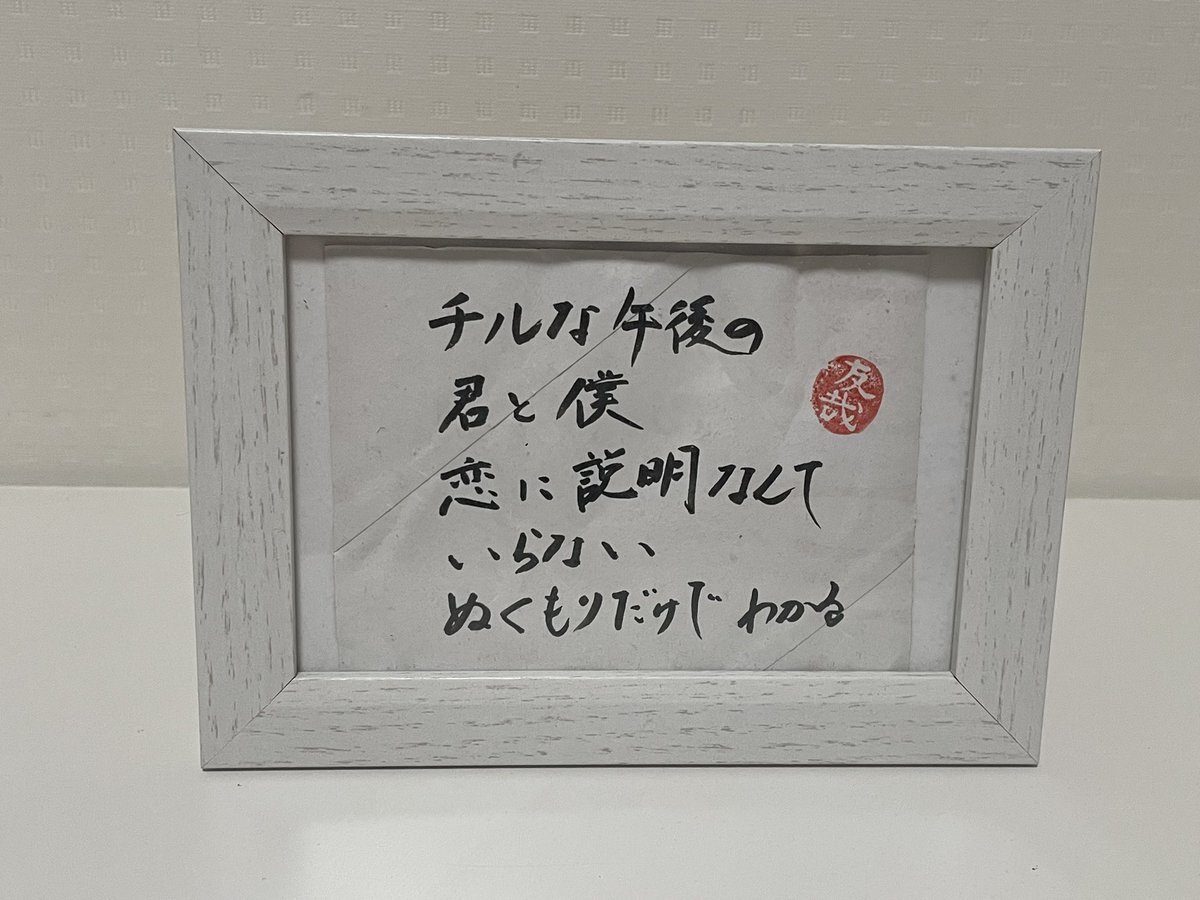 チルな午後の
君と僕
恋に説明なんて
いらない
ぬくもりだけで わかる
友哉